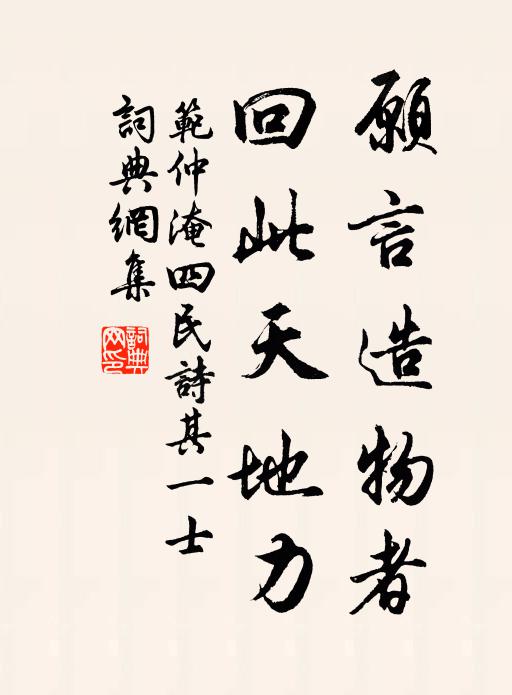 願言造物者
回此天地力
範仲淹四民詩其一士
詞典網集
詞典網印